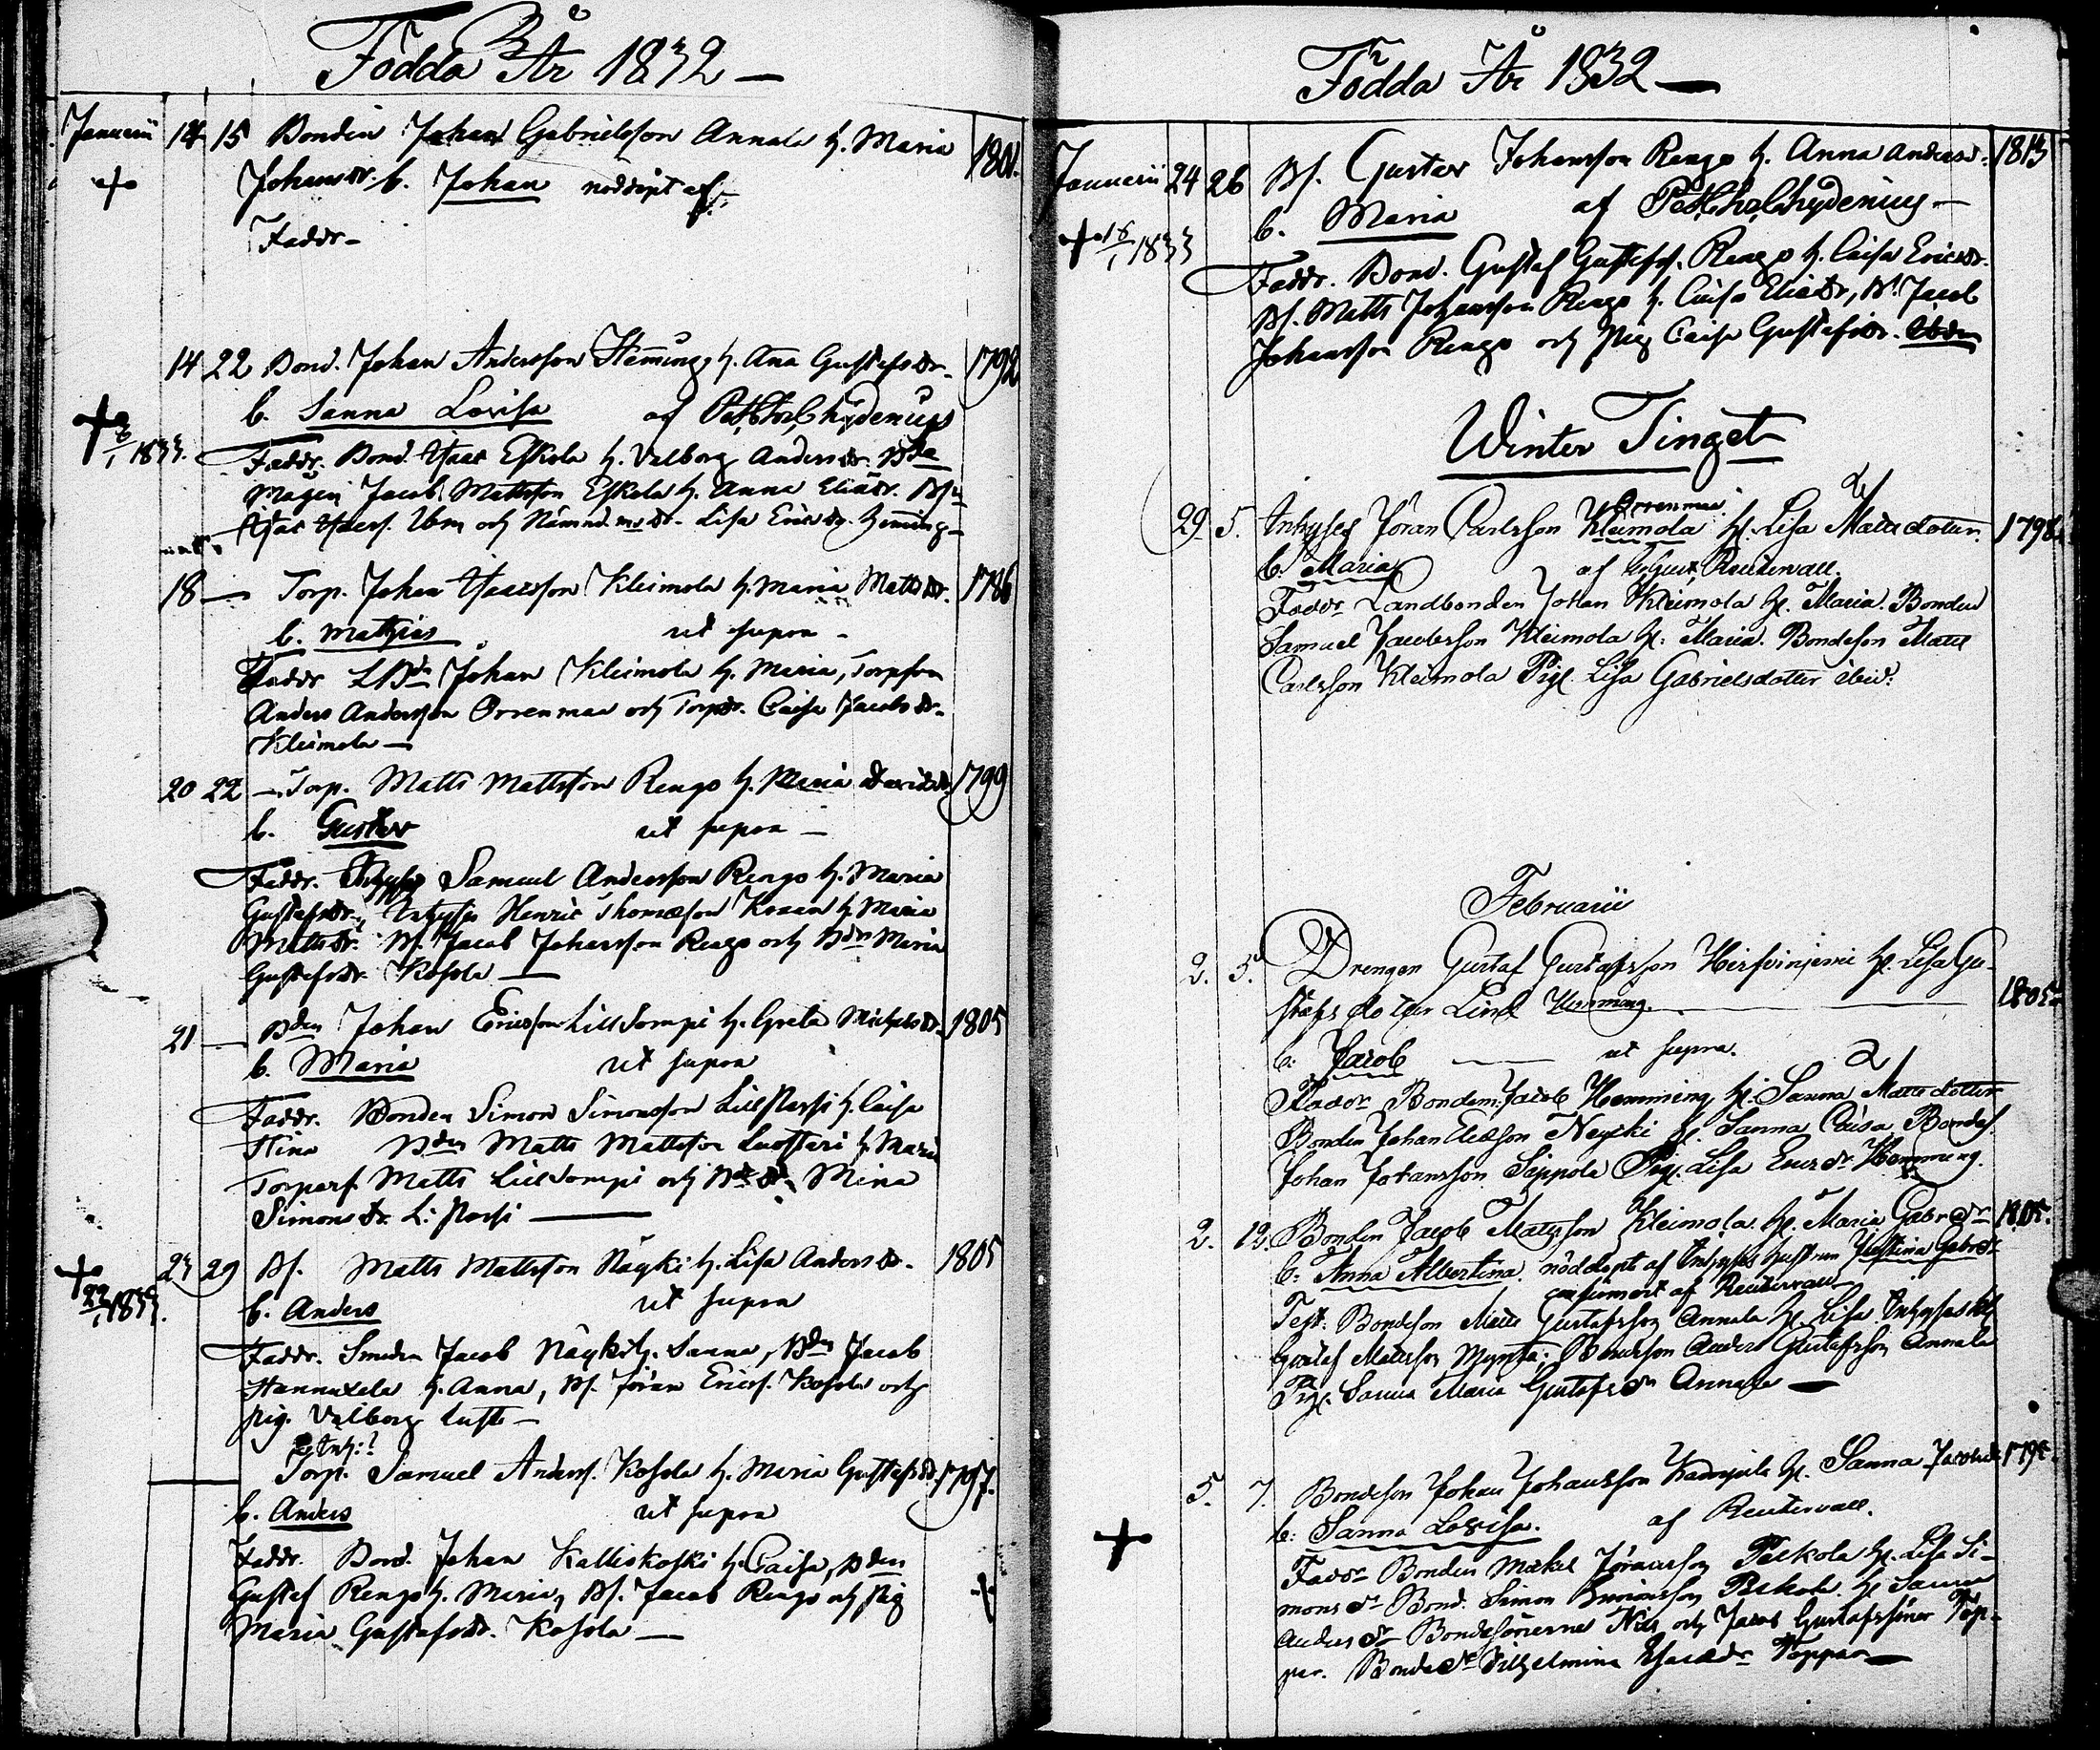 Födda År 1832 —
Januarii 14 15 Bonden Johan Gabrielsson Annala h. Maria 1801.
+ Johansdr. b. Johan nöddöpt af
Faddr —
14 22 Bond. Johan Andersson Hemming h. Anna Gustafsdr. 1792
b. Sanna Lovisa af
+ 1833. Faddr. Bond. Isaac Eskola h. Valborg Andersdr. Bde
Mågen Jacob Mattsson Eskola h. Anna Eliædr.
och Lisa Ericsdr. Hemming —
18 — Torp. Johan Isaacsson Kleimola h. Maria Mattsdr. 1786
b. Mathias ut supra —
Faddr LBdn Johan Kleimola h. Maria, Torpson
Anders Andersson Orrenmaa och Torpdr. Caisa Jacobsdr.
Kleimola —
20 22 — Torp. Matts Mattsson Rengo h. Maria Davidsdr. 1799
b. Gustav ut supra —
Faddr. Samuel Andersson Rengo h. Maria
Gustafsdr., Inhyses Henric Thomasson Kraan h. Maria
Mattsdr. Bs. Jacob Johansson Rengo och Bdr Maria
Gustafsdr. Kosola —
21 — Bden Johan Ericsson Lill Sompi h. Greta Michelsdr. 1805
b. Maria ut supra
Faddr. Bonden Simon Simonsson Lill h. Caisa
Stina Bden Matts Mattsson Luostari h. Maria
Torpars. Matts Lill Sompi och Mina
Simonsdr. L:
+ 1833. 27 29 Bs. Matts Mattsson Näyki h. Lisa Andersdr. 1805
b. Anders ut supra
Faddr. Smeden Jacob Näyki h. Sanna, Bden Jacob
Hannuxela h. Anna, Bs. Jöran Erics. Kosola och
pig. Valborg Lusti —
Inh:?
Torp. Samuel Anders. Kosola h. Maria Gustafsdr. 1797.
b. Anders ut supra
Faddr. Bond. Johan Kalliokoski h. Caisa, Bden
Gustaf Rengo h. Maria, Bs. Jacob Rengo och pig +
Maria Gustafsdr. Kosola —
Födda År 1832 —
Januarii 24 26 Bs. Gustav Johansson Rengo h. Anna Andersd. 1813
b. Maria af
+ 16/1 1833
Faddr. Bond. Gustaf Gustafss. Rengo h. Caisa Ericsdr.
Bs. Matts Johansson Rengo h. Caisa Eliædr, Bs. Jacob
Johansson Rengo och Pig Caisa Gustafsdr.
Winter Tinget
Orrenmaa
29. 5. Inhyses Jöran Carlsson Kleimola h. Lisa Mattsdotter. 1798.
b. Maria af Reutervall.
Faddr Landbonden Johan Kleimola H. Maria. Bonden
Samuel Jacobsson Kleimola H. Maria. Bondeson Matts
Carlsson Kleimola Pig. Lisa Gabrielsdotter ibid.
Februarii
2. 5. Drengen Gustaf Gustafsson Hirfvinjemi H. Lisa Gu-
stafs dotter Lind Hemming. — 1805
b. Jacob — ut supra.
Faddr Bonden Jacob Hemming H. Sanna Mattsdotter
Bonden Johan Eliæson Neycki H. Sanna Caisa Bondes.
Johan Johansson Sippola Pig. Lisa Ericsdr Hemming.
2. 12. Bonden Jacob Matsson Kleimola H. Maria Gabrsdr 1805.
b. Anna Albertina. nöddöpt af Inhyses hustrun Justina Gabrsdr
confirmert af Reutervall
Test. Bondeson Matts Gustafsson Annala H. Lisa Inhyses
Gustaf Matsson Myntä; Bondeson Anders Gustafsson Annala
Pig. Sanna Maria Gustafsdr Annala —
5. 7. Bondeson Johan Johansson H. Sanna Jacobsdr 179
+ b. Sanna Lovisa. af Reutervall.
Faddr Bonden Mickel Jöransson Peckola H. Lisa Si-
monsdr Bond. Simon Simonsson Peckola H. Sanna
Andersdr Bondesönerne Nils och Jacob Gustafssöner Top-
par. Bondedr Vilhelmina Isacsdr Toppar —